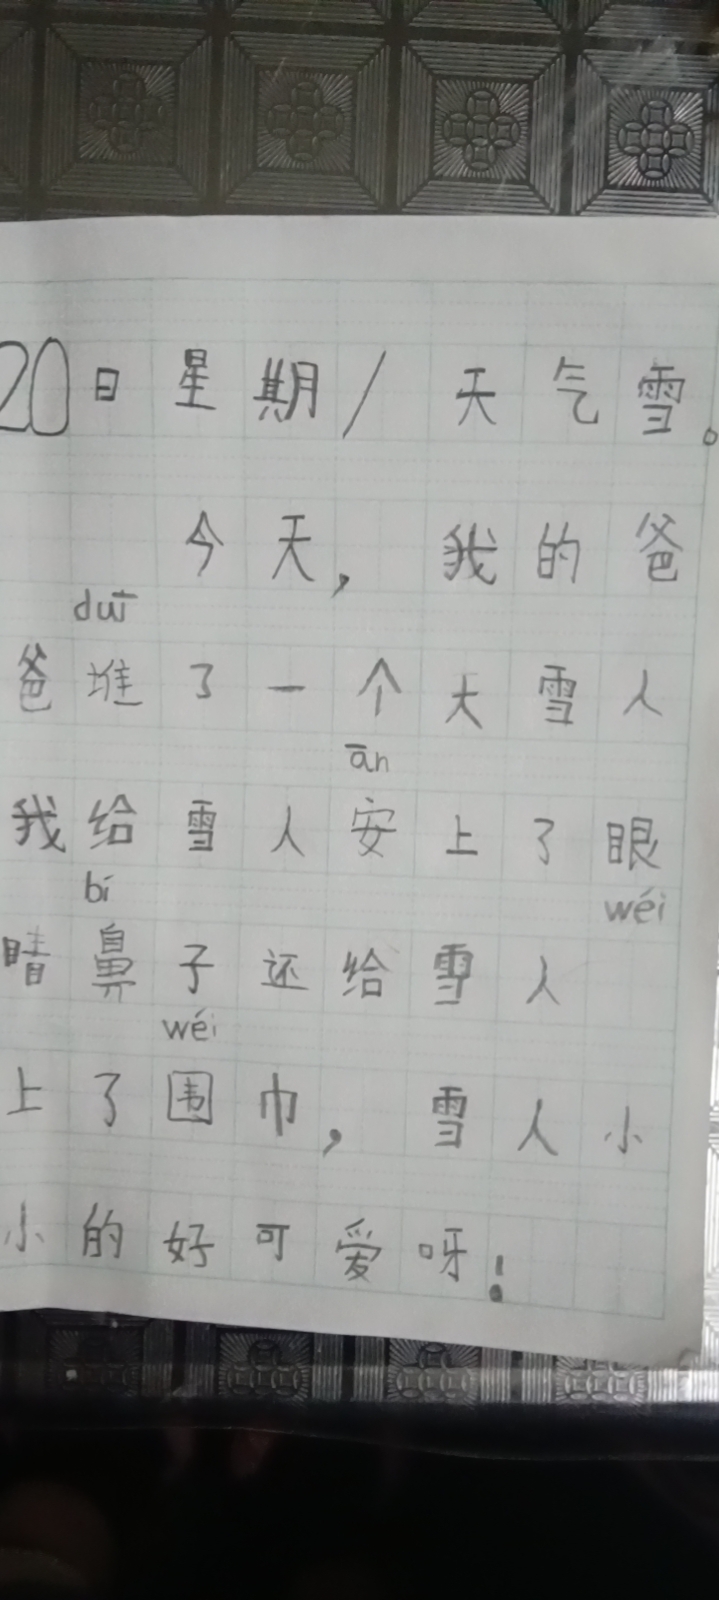 20日星期/ 天气雪。
今天，我的爸
duī
爸堆了一个大雪人
ān
我给雪人安上了眼
bí wéi
睛鼻子还给雪人
wéi
上了围巾，雪人小
小的好可爱呀！